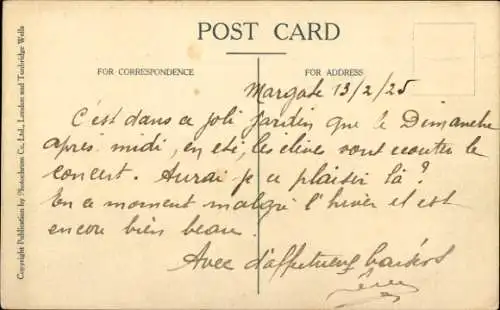 POST CARD
FOR CORRESPONDENCE
FOR ADDRESS
Copyright Publication by Photochrom Co., Ltd., London and Tunbridge Wells
Margate 13/2/25
C'est dans ce joli Jardin que le Dimanche
après midi, en été, les élèves vont ecouter le
concert. Aurai je ce plaisir là?
En ce moment malgré l'hiver il est
encore bien beau.
Avec d'affectueux baisers